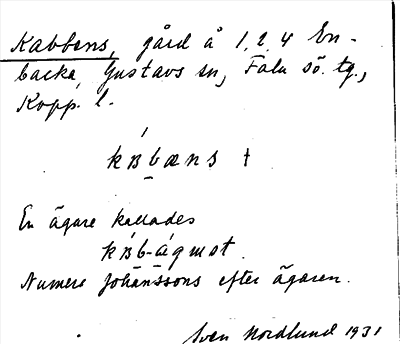 Kabbens, gård å 1, 2, 4 En-
backa, Gustavs sn, Falu sö. tg.,
Kopp. l.
kɒ́bæns †
En ägare kallades
kɒ́b-ágmot.
Numera Johanssons efter ägaren.
Sven Nordlund 1931